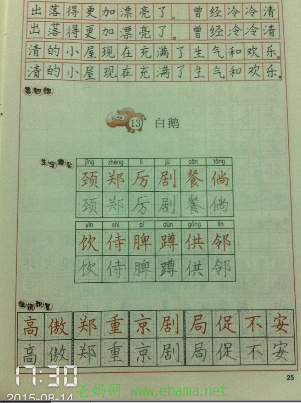 出落得更加漂亮了。曾经冷冷清
出落得更加漂亮了。曾经冷冷清
清的小屋现在充满了生气和欢乐。
清的小屋现在充满了生气和欢乐。
13 白鹅
jǐng zhèng lì jù cān tǎng
颈郑厉剧餐倘
颈郑厉剧餐倘
yǐn shì pí dūn gōng lín
饮侍脾蹲供邻
饮侍脾蹲供邻
高傲郑重京剧局促不安
高傲郑重京剧局促不安
17:30
2015-08-14
www.ebama.net
25